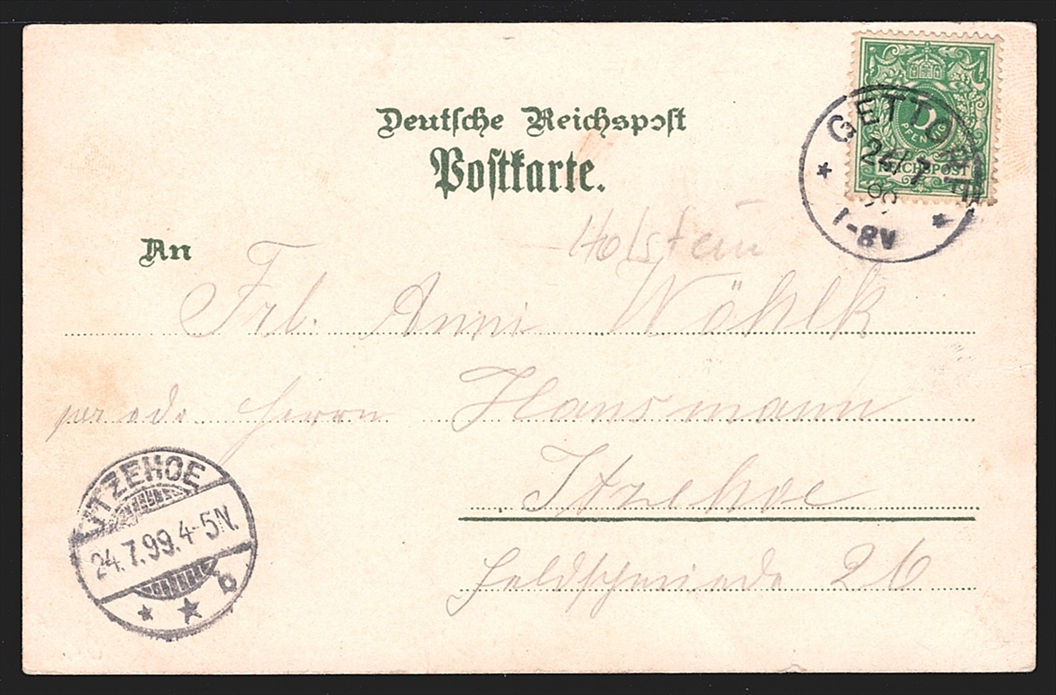 Deutsche Reichspost
Postkarte.
GETTORF
24/7
99
7-8V
5
PFENNIG
REICHSPOST
Holstein
An
Frl. Anni Wöhlk
per ade. Herrn Hansmann
Itzehoe
Feldschmiede 26
ITZEHOE
24.7.99.4-5N.
b